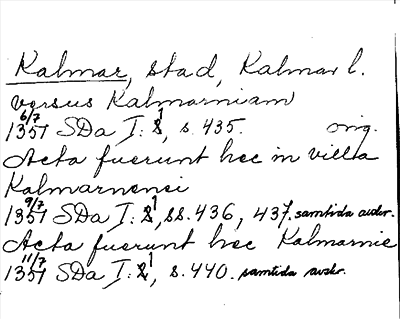 Kalmar, stad, Kalmar l.
versus Kalmarniam
6/7 1351 SDa I:1, s. 435. orig.
Acta fuerunt hec in villa
Kalmarnensi
9/7 1351 SDa I:1, ss. 436, 437. samtida avskr.
Acta fuerunt hec Kalmarnie
11/7 1351 SDa I:1, s. 440. samtida avskr.